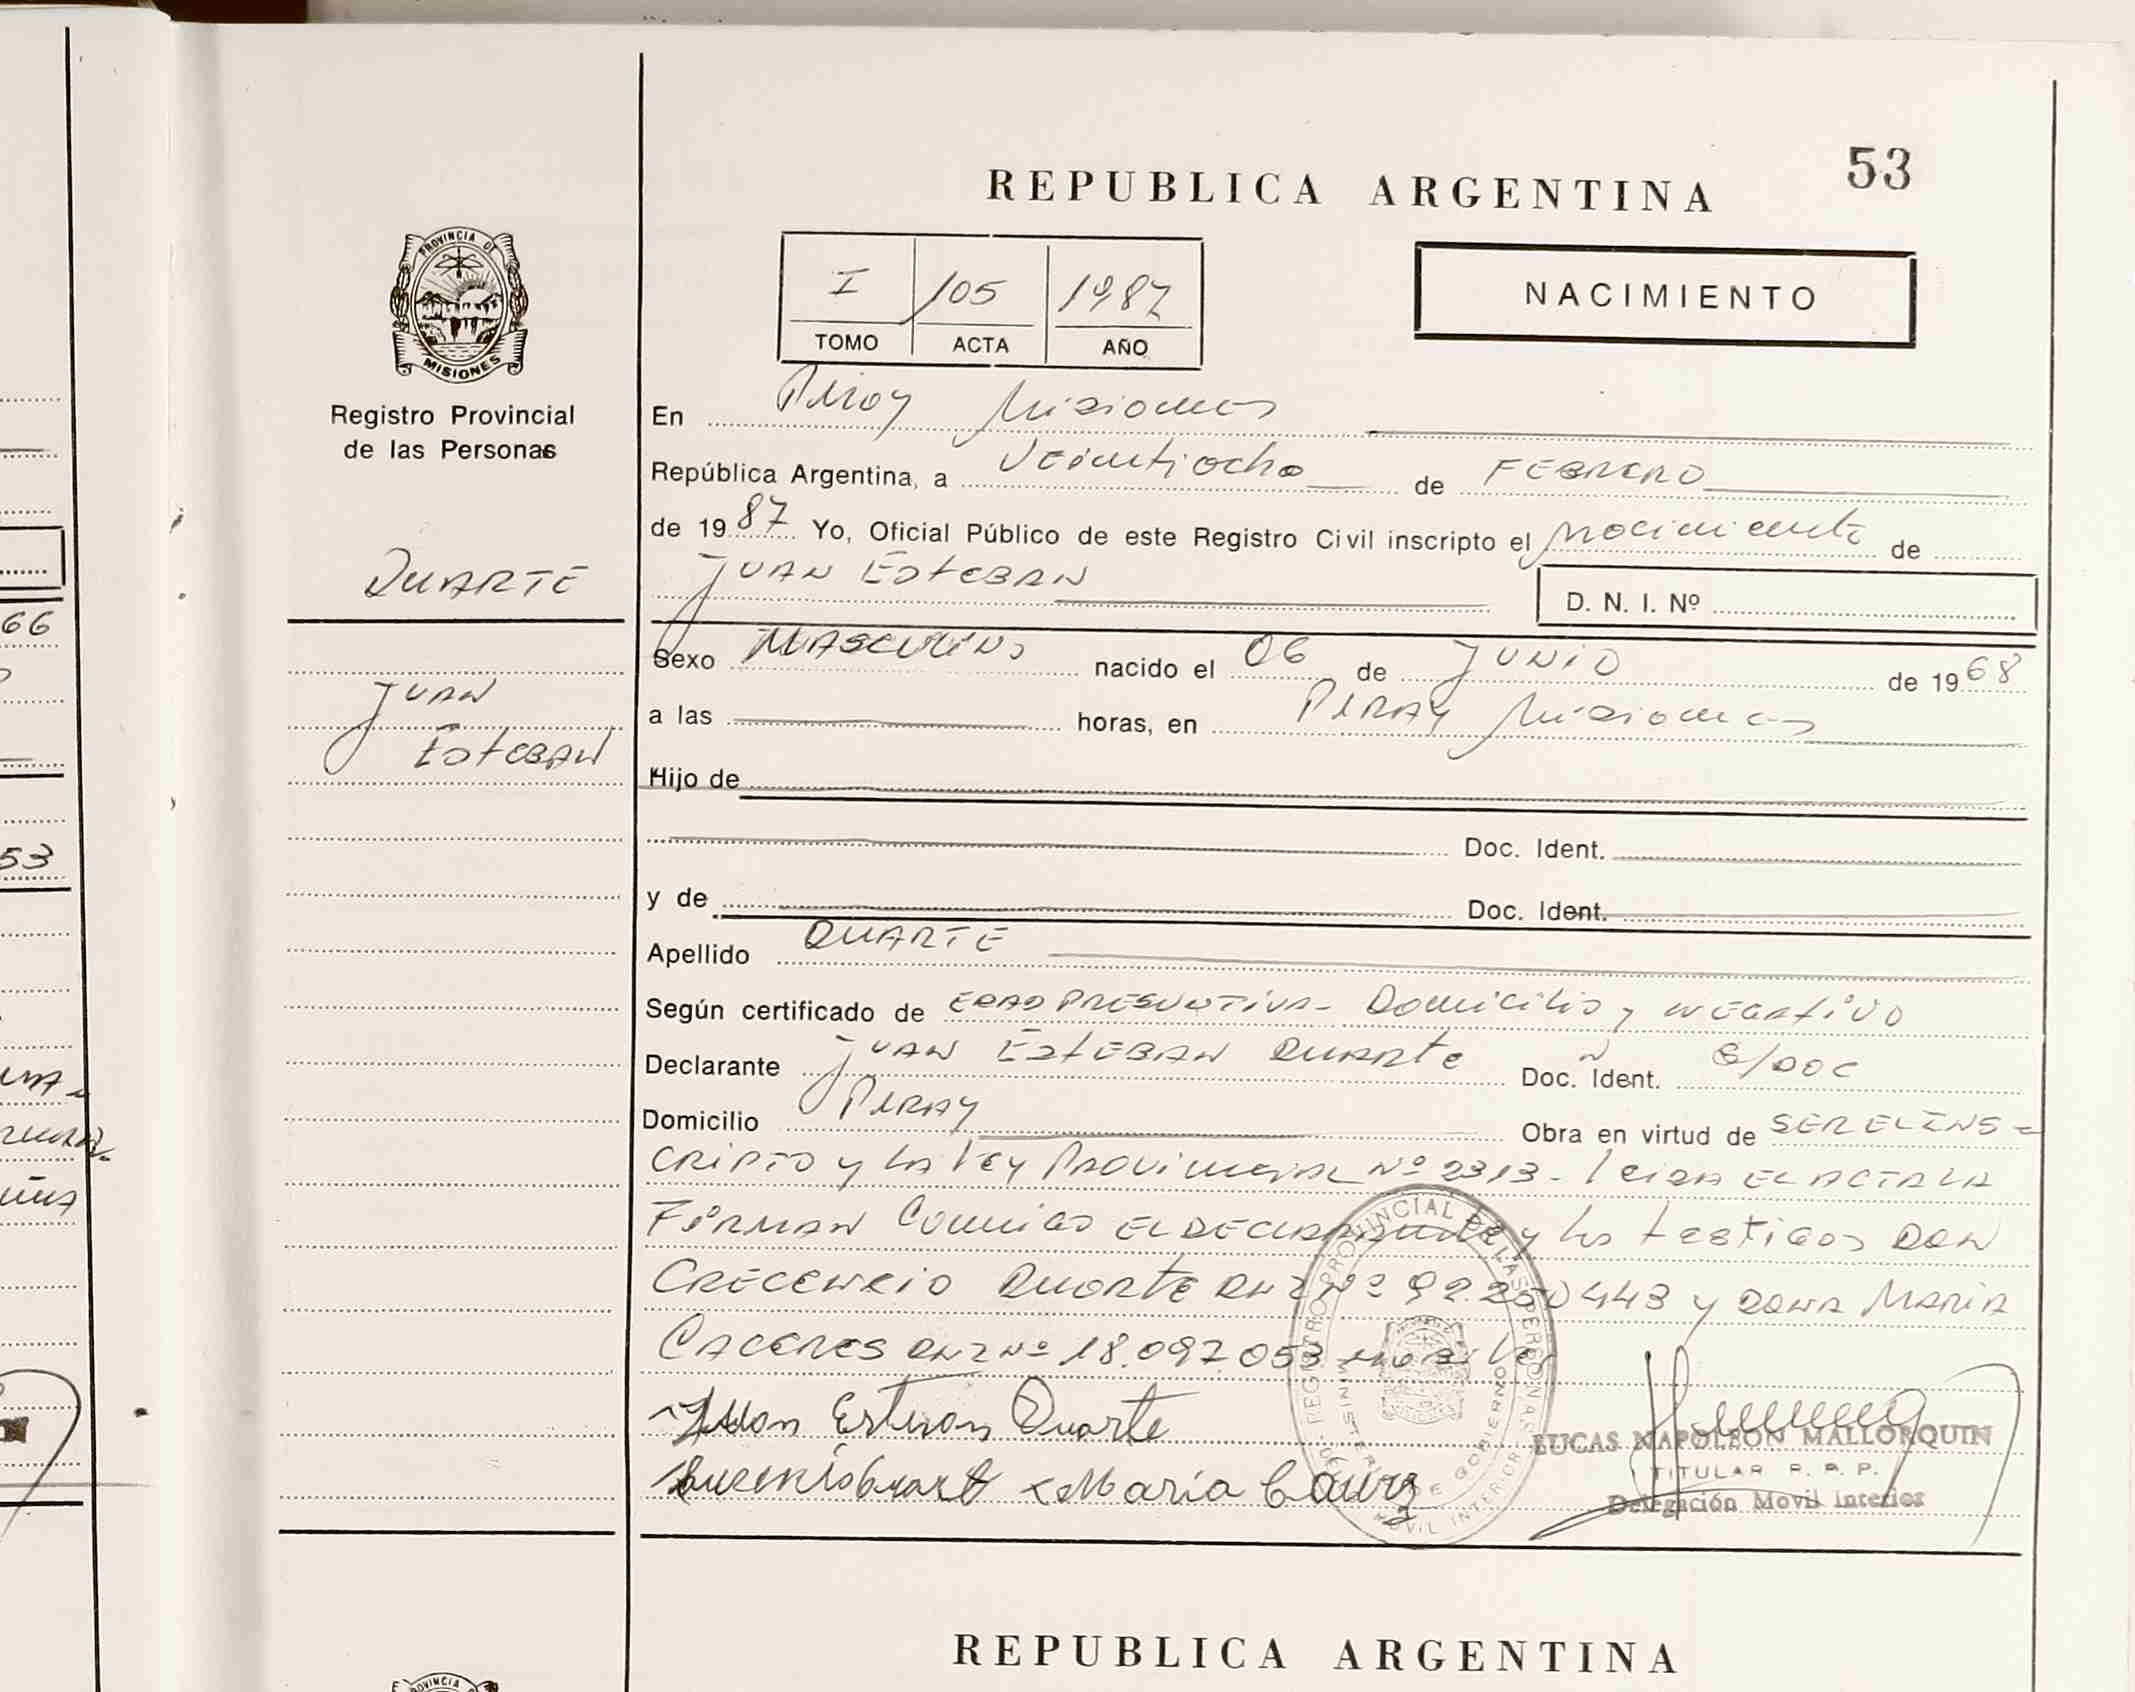 53
REPUBLICA ARGENTINA
I 105 1987
TOMO ACTA AÑO
NACIMIENTO
PROVINCIA DE
MISIONES
Registro Provincial
de las Personas
DUARTE
JUAN
EstEBAN
En Piray Misiones
República Argentina, a Veintiocho de FEBRERO
de 1987 Yo, Oficial Público de este Registro Civil inscripto el nacimiento de
JUAN EstEBAN
D. N. I. Nº
Sexo MASCULINO nacido el 06 de JUNIO de 1968
a las horas, en PIRAY Misiones
Hijo de
Doc. Ident.
y de Doc. Ident.
Apellido DUARTE
Según certificado de EDAD PRESUNTIVA - Domicilio y NEGATIVO
Declarante JUAN EstEBAN DUARtE Doc. Ident. S/DOC
Domicilio PIRAY Obra en virtud de SER EL INS-
CRIPTO y LA LEY PROVINCIAL Nº 2313 - Leida EL ACTA LA
FIRMAN Conmigo EL DECLARANTE y los testigos DON
CRECENCIO DUARTE DNI Nº 92.250443 y DOÑA MARIA
CACERES DNI Nº 18.097.053
Juan Esteban Duarte
Maria
REGISTRO PROVINCIAL DE LAS PERSONAS
MINISTERIO DE GOBIERNO
MOVIL INTERIOR
LUCAS NAPOLEON MALLORQUIN
TITULAR R. P. P.
Delegación Movil Interior
REPUBLICA ARGENTINA
PROVINCIA
66
53